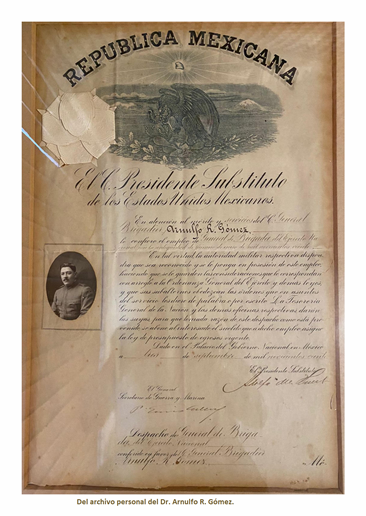 REPUBLICA MEXICANA
El C. Presidente Substituto
de los Estados Unidos Mexicanos.
En atención al mérito y servicios del C. General
Brigadier Arnulfo R. Gómez,
le confiere el empleo de General de Brigada del Ejército
En tal virtud la autoridad militar respectiva dispon-
drá que sea reconocido y se le ponga en posesión de este empleo
haciendo que se le guarden las consideraciones que le corresponden
con arreglo á la Ordenanza General del Ejército y demás leyes
y que sus subalternos obedezcan las órdenes que en asuntos
del servicio les diere de palabra ó por escrito. La Tesorería
General de la y las demás oficinas respectivas
de este despacho
al interesado el sueldo que á dicho empleo asigna
la ley de presupuesto de egresos vigente.
Dado en el Palacio del Gobierno Nacional en México
á de septiembre de mil novecientos veinte
El Presidente Substituto
El General
Secretario de Guerra y Marina
Despacho de General de Briga
da del Ejército Nacional
conferido á favor del C. General Brigadier
Arnulfo R. Gómez
Del archivo personal del Dr. Arnulfo R. Gómez.